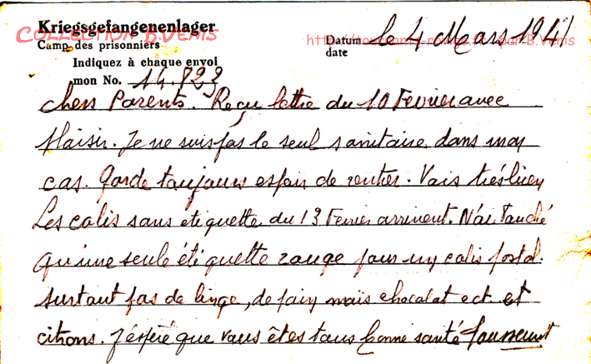 Kriegsgefangenenlager
COLLECTION B.VENIS
Camp des prisonniers
Datum le 4 Mars 1941
date
Indiquez à chaque envoi
mon No. 14.823
Chers Parents. Reçu lettre du 10 Fevrier avec
Plaisir. Je ne suis pas le seul sanitaire dans mon
cas. Garde toujours espoir de rentrer. Vais très bien
Les colis sans etiquette du 13 Fevrier arrivent. N'ai Touché
qu'une seule étiquette rouge pour un colis postal.
Surtout pas de linge, de pain mais chocolat ect. et
citrons. J'éspéré que vous êtes tous bonne santé